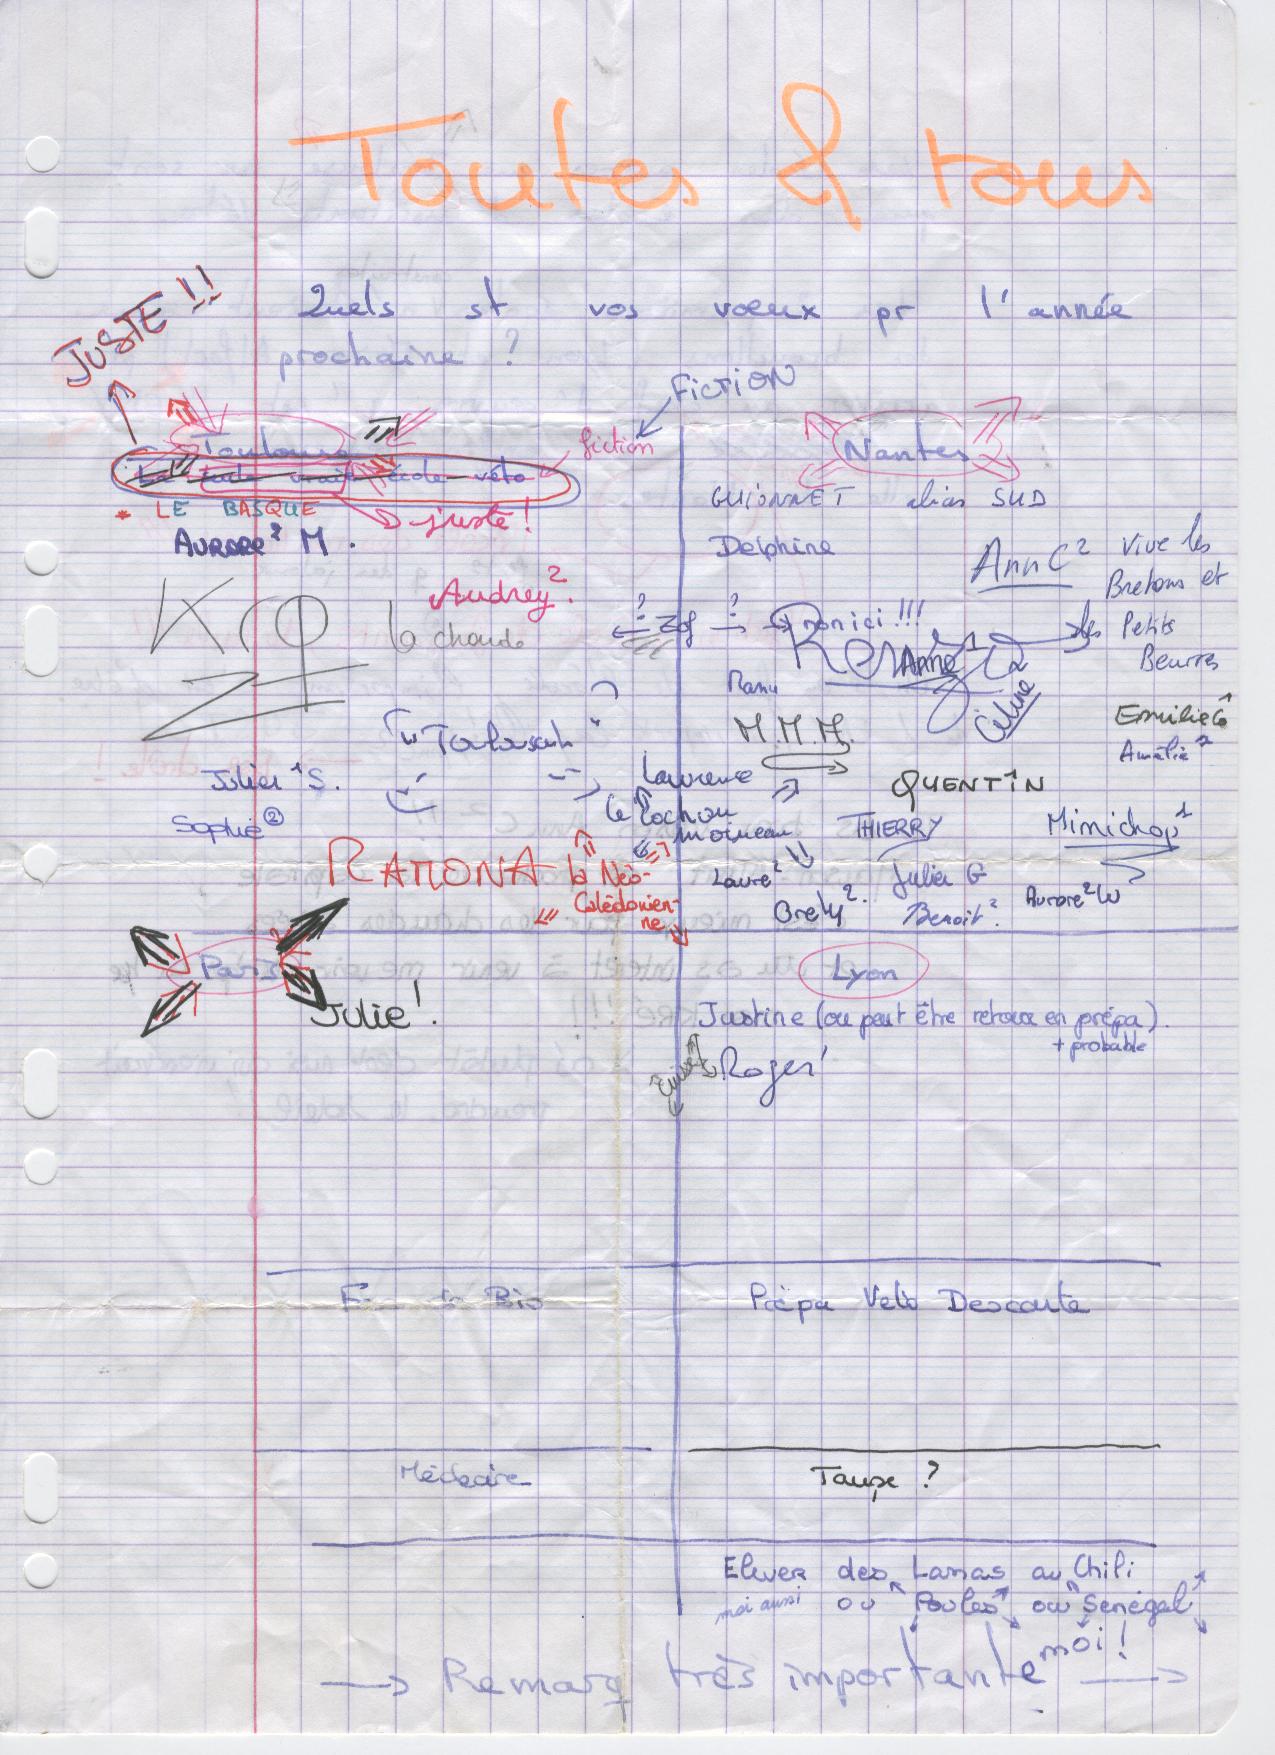 Toutes & tous
Quels st vos voeux pr l'année
prochaine ?
JUSTE !!
FICTION
fiction
Toulouse
La seule vraie école véto
LE BASQUE
juste !
AURORE² M.
Audrey².
Krq
la chaude
Toulousain
Julien¹ S.
Sophie②
RAMONA la Néo-
Calédonien-
ne
Nantes
GUIONNET alias SUD
Delphine
AnnC² Vive les
Bretons et
les Petits
Beurres
? Zof ? non ici !!!
Anne¹
Manu
Céline
M.M.M.
Emilie G¹
Amélie²
Laurence
le Cochon
moineau
QUENTIN
THIERRY
Minichop¹
Laure²
Julien G
Aurore² W
Benoit².
Paris
Julie !
Lyon
Justine (ou peut être retour en prépa).
+ probable
Roger
Bio
Prépa Véto Descarte
Médecine
Taupe ?
Elever des Lamas au Chili
moi aussi ou Poules ou Sénégal
moi !
→ Remarq très importante →